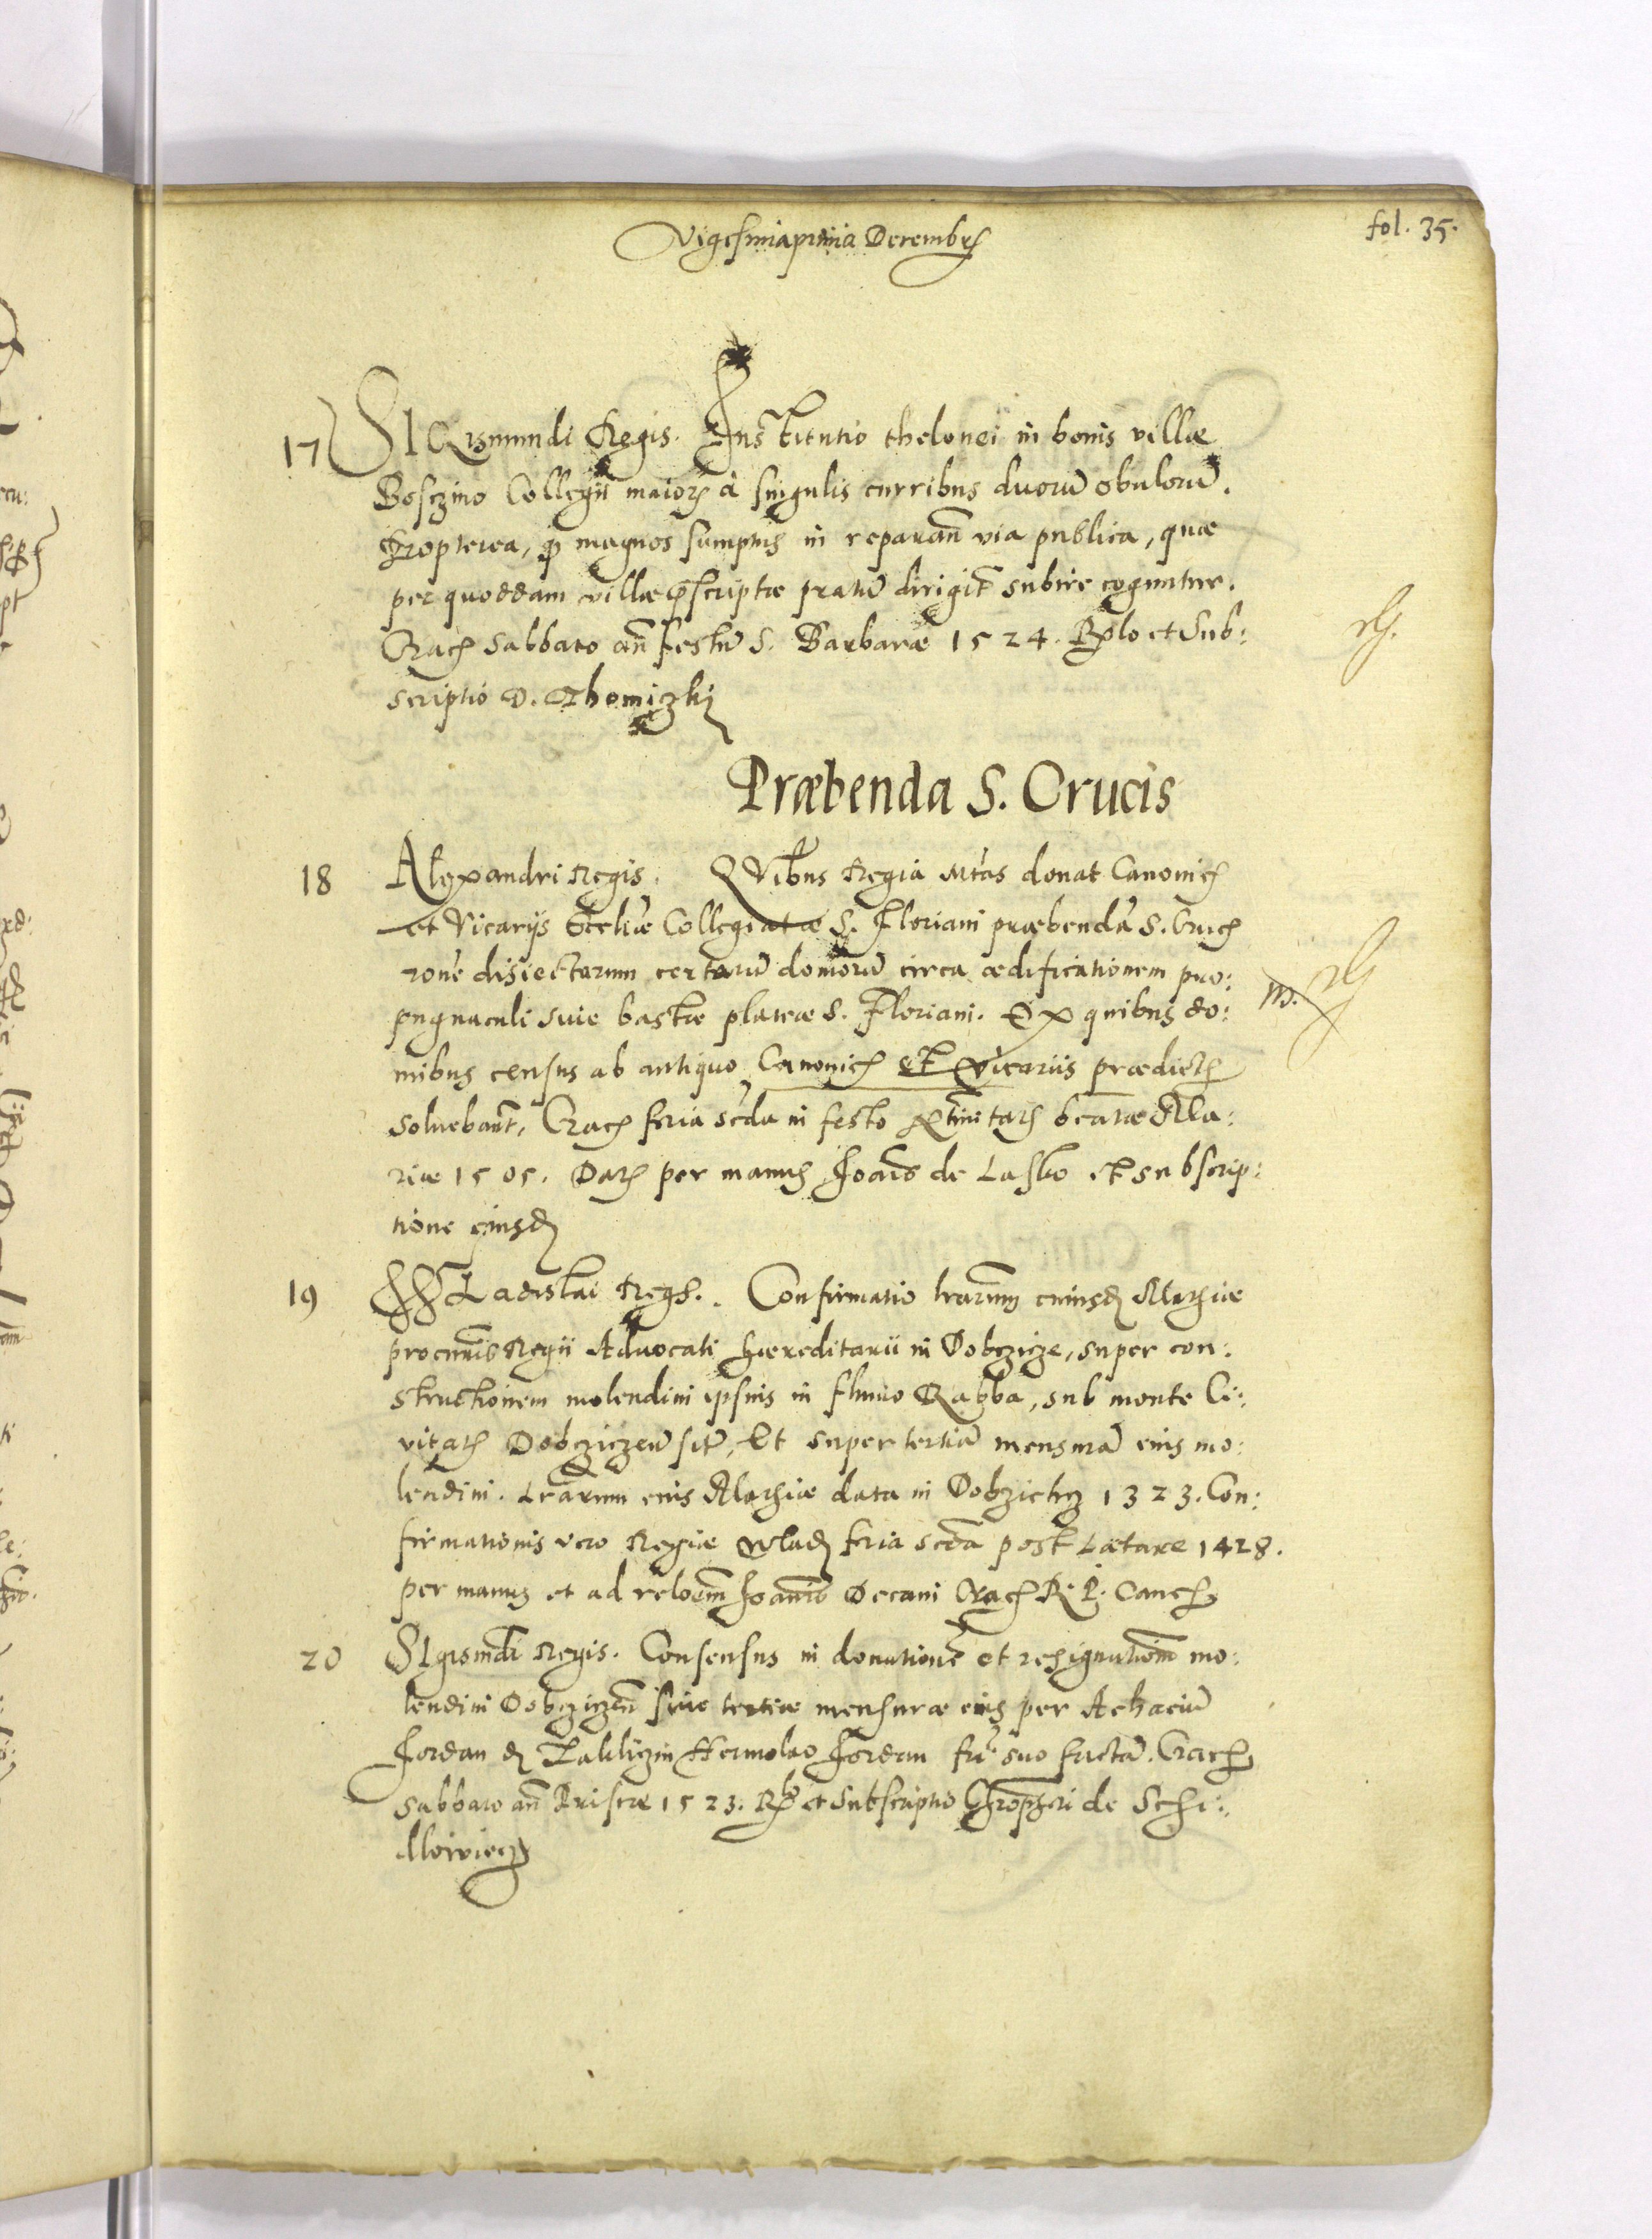 fol. 35.
Vigesima prima Decembris
17 SIGismundi Regis. Institutio thelonei in bonis villæ
Bosczino Collegii maioris à singulis curribus duorū obulorū.
Propterea, quod magnos sumptus in reparan̄ via publica, quæ
per quoddam villæ præscriptæ pratū dirigit̄ subire coguntur.
Crac. Sabbato an̄ festū S. Barbaræ 1524. Rēlo et Sub:
scriptio D. Thomiczkj
Præbenda S. Crucis
18 Alexandri Regis. QVibus Regia Mtas donat Canonicis
et Vicarijs Eccliæ Collegiatæ S. Floriani præbendā S. Crucis
rone disiectarum certarū domorū circa ædificationem pro:
pugnaculi siue bastæ plateæ S. Floriani. Ex quibus do:
mibus census ab antiquo Canonicis et Vicariis prædictis
soluebant, Crac. feria scda in festo Natiuitatis beatæ Ma:
riæ 1505. Datis per manus Joānis de Lasko et subscrip:
tione eiusd.
19 WLadislai Regis. Confirmatio lrarum cuiusd. Mathiæ
procuratoris Regii Advocati hæreditarii in Dobczicze, super con:
structionem molendini ipsius in fluuio Rabba, sub monte Ci:
vitatis Dobcziczen̄ sit., Et super tertiā mensurā eius mo:
lendini. Lrarum eius Mathiæ data in Dobzicky 1323. Con:
firmationis vero Regiæ Wlad. feria scda post Lætare 1428.
per manus et ad reloēm Joānis Decani Crac. R. P. Canc.
20 SIgismdi Regis. Consensus in donationē et resignationēm mo:
lendini Dobcziczen̄ siue tertiæ mensuræ eius per Achaciū
Jordan d. Zakliczin Hermolao Jordan fri suo factā. Crac.
Sabbato an̄ Priscæ 1523. Rlo et Subscriptio Chrophori de Schi:
dlowiecz